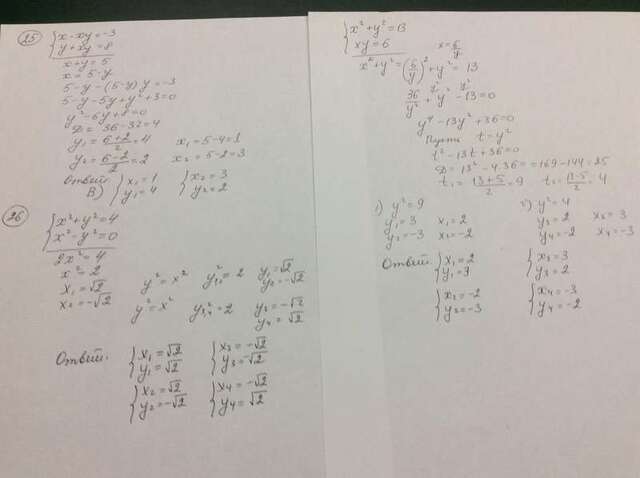 25
x - xy = -3
y + xy = 8
x + y = 5
x = 5 - y
5 - y - (5 - y) y = -3
5 - y - 5y + y² + 3 = 0
y² - 6y + 8 = 0
D = 36 - 32 = 4
y₁ = (6+2)/2 = 4 x₁ = 5 - 4 = 1
y₂ = (6-2)/2 = 2 x₂ = 5 - 2 = 3
Ответ
В) { x₁ = 1 { x₂ = 3
y₁ = 4 y₂ = 2
26
x² + y² = 4
x² - y² = 0
2x² = 4
x² = 2
x₁ = √2 y² = x² = 2 y₁ = √2
x₂ = -√2 y₂ = -√2
y² = x² = 2 y₃ = -√2
y₄ = √2
Ответ.
{ x₁ = √2 { x₃ = -√2
y₁ = √2 y₃ = -√2
{ x₂ = √2 { x₄ = -√2
y₂ = -√2 y₄ = √2
x² + y² = 13
xy = 6 x = 6/y
x² + y² = (6/y)² + y² = 13
36/y² + y² - 13 = 0
y⁴ - 13y² + 36 = 0
Пусть t = y²
t² - 13t + 36 = 0
D = 13² - 4·36 = 169 - 144 = 25
t₁ = (13+5)/2 = 9 t₂ = (13-5)/2 = 4
1) y² = 9 2) y² = 4
y₁ = 3 x₁ = 2 y₃ = 2 x₃ = 3
y₂ = -3 x₂ = -2 y₄ = -2 x₄ = -3
Ответ { x₁ = 2 { x₃ = 3
y₁ = 3 y₃ = 2
{ x₂ = -2 { x₄ = -3
y₂ = -3 y₄ = -2